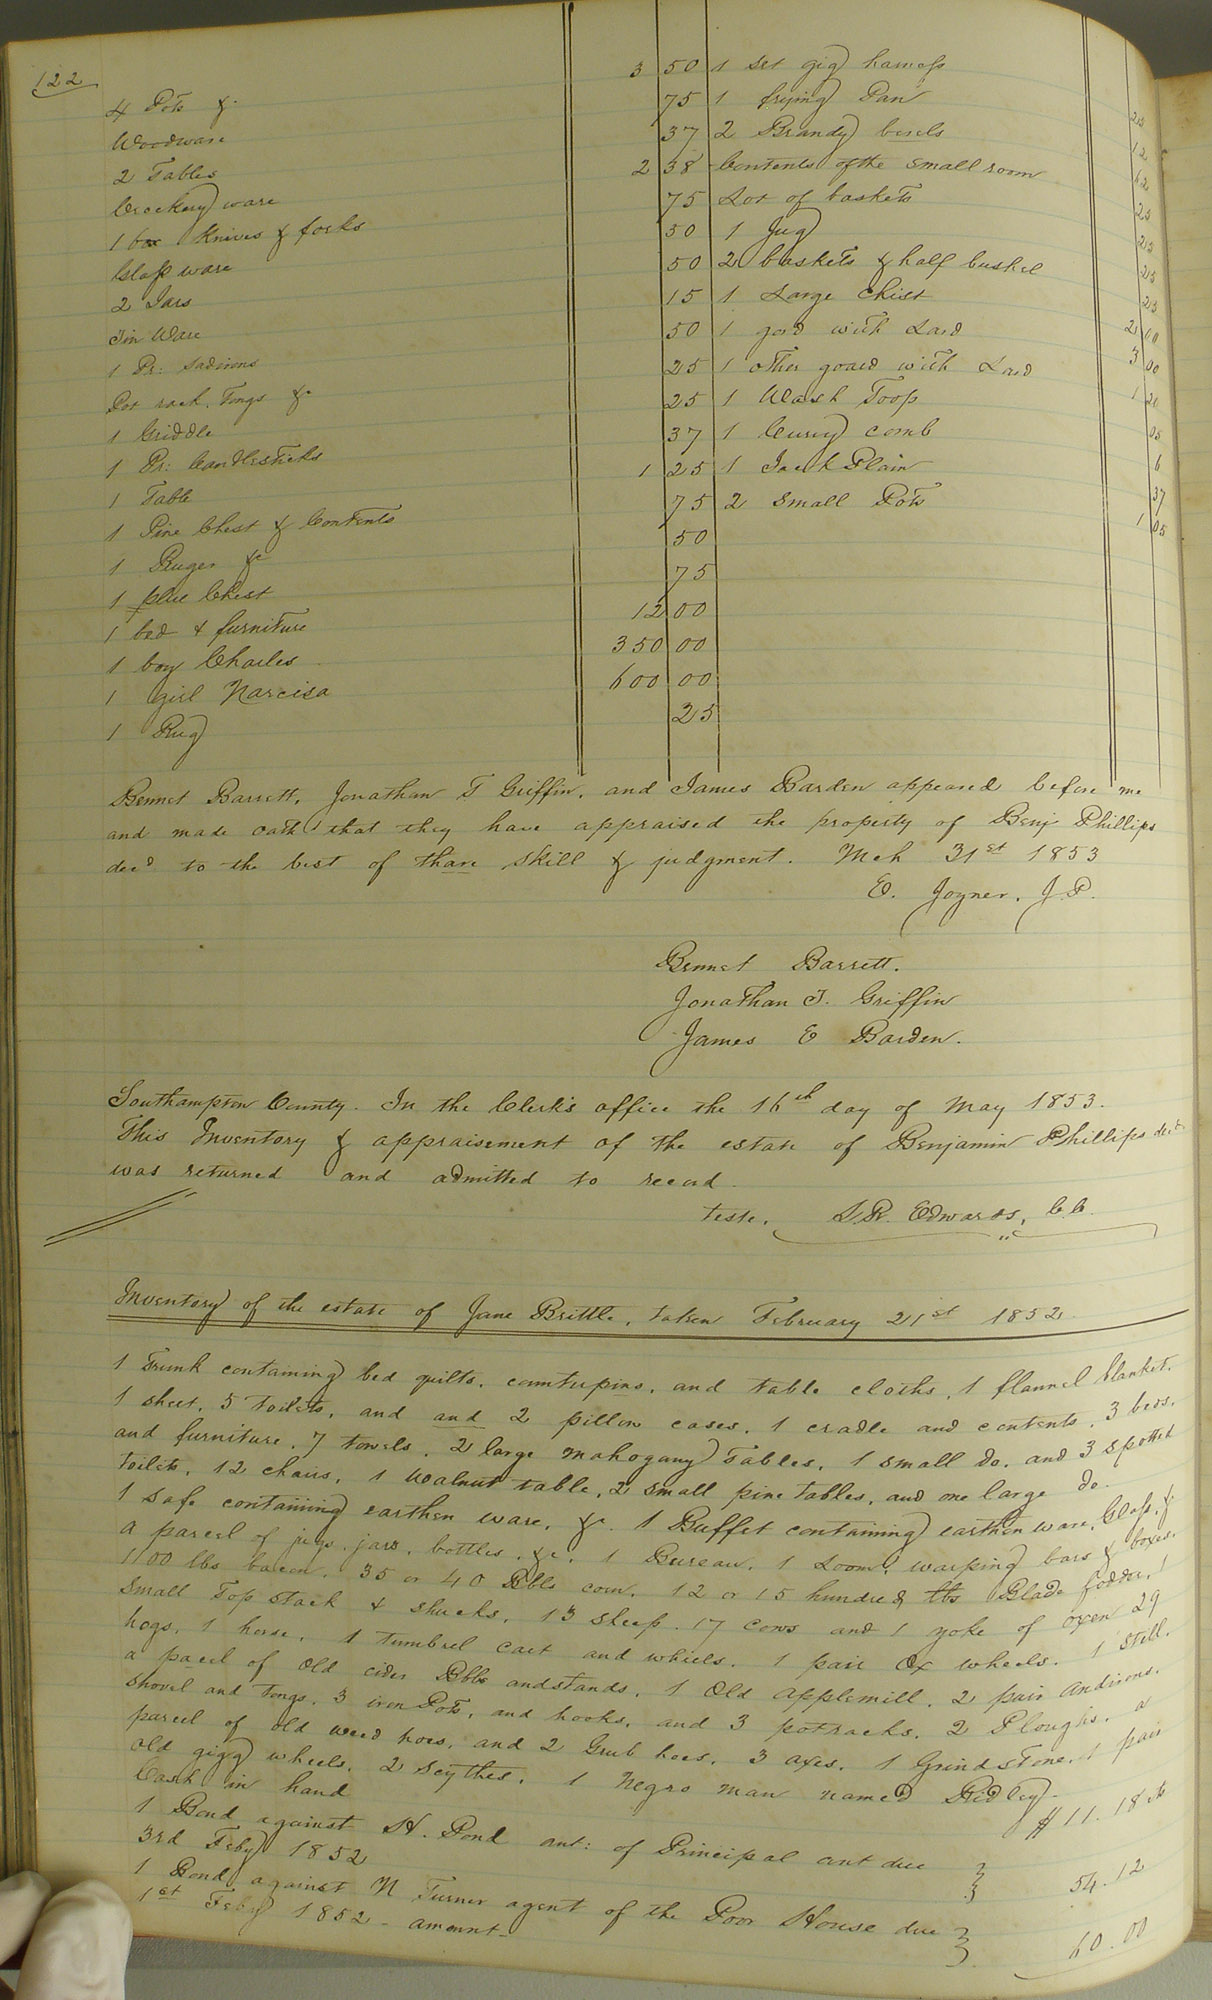 122
4 Pots &c 3 50
Woodware 75
2 Tables 37
Crockery ware 2 38
1 box Knives & forks 75
Glass ware 50
2 Jars 50
Tin Ware 15
1 Pr: Sadirons 50
Pot rack, Tongs &c 25
1 Griddle 25
1 Pr: Candlesticks 37
1 Table 1 25
1 Pine Chest & Contents 75
1 &c 50
1 Chest 75
1 bed & furniture 12 00
1 boy Charles 350 00
1 girl Narcisa 600 00
1 Rug 25
1 Set gig harness
1 frying Pan 25
2 Brandy barels 12
Contents of the small room 62
Lot of baskets 25
1 Jug 25
2 baskets & half bushel 25
1 Large Chist 25
1 gord with Lard 2 00
1 other goard with Lard 3 00
1 Wash Toop 1 20
1 Curry comb 05
1 Jack Plain 6
2 Small Pots 37
1 05
Bennet Barrett, Jonathan T Griffin, and James Barden appeared before me
and made oath that they have appraised the property of Benj Phillips
decd to the best of thare skill & judgment. Mch 31st 1853
E. Joyner, J.P.
Bennet Barrett.
Jonathan T. Griffin
James E Barden.
Southampton County. In the Clerk's office the 16th day of May 1853.
This Inventory & appraisement of the estate of Benjamin Phillips decd
was returned and admitted to record.
teste, L R. Edwards, C.C.
Inventory of the estate of Jane Brittle, taken February 21st 1852
1 Trunk containing bed quilts, countupins, and table cloths, 1 flannel blanket.
1 sheet, 5 toilets, and and 2 pillow cases, 1 cradle and contents, 3 beds.
and furniture, 7 towels, 2 large mahogany Tables, 1 small do. and 3 spotted
toilets, 12 chairs, 1 Walnut table, 2 small pine tables, and one large do.
1 safe containing earthen ware, &c. 1 Buffet containing earthen ware, Glass, &
a parcel of jugs, jars, bottles, &c, 1 Bureau, 1 Loom, warping bars & boxes.
1100 lbs bacon, 35 or 40 Bbls corn, 12 or 15 hundred lbs Blade fodder, 1
small Top stack & shucks, 13 sheep, 17 cows and 1 yoke of oxen 29
hogs, 1 horse, 1 tumbrel cart and wheels, 1 pair Ox wheels. 1 Still.
a parcel of old cider Bbls and stands, 1 Old applemill, 2 pair andirons,
shovel and tongs, 3 iron Pots, and hooks, and 3 potracks, 2 Ploughs, a
parcel of old weed hoes, and 2 Grub hoes, 3 axes, 1 Grindstone, 1 pair
old gigg wheels, 2 Scythes, 1 Negro man named Ridley.
Cash in hand $11.18 cts
1 Bond against H. Pond amt: of Principal amt due
3rd Feby 1852 54.12
1 Bond against N Turner agent of the Poor House due
1st Feby 1852 - amount- 60.00